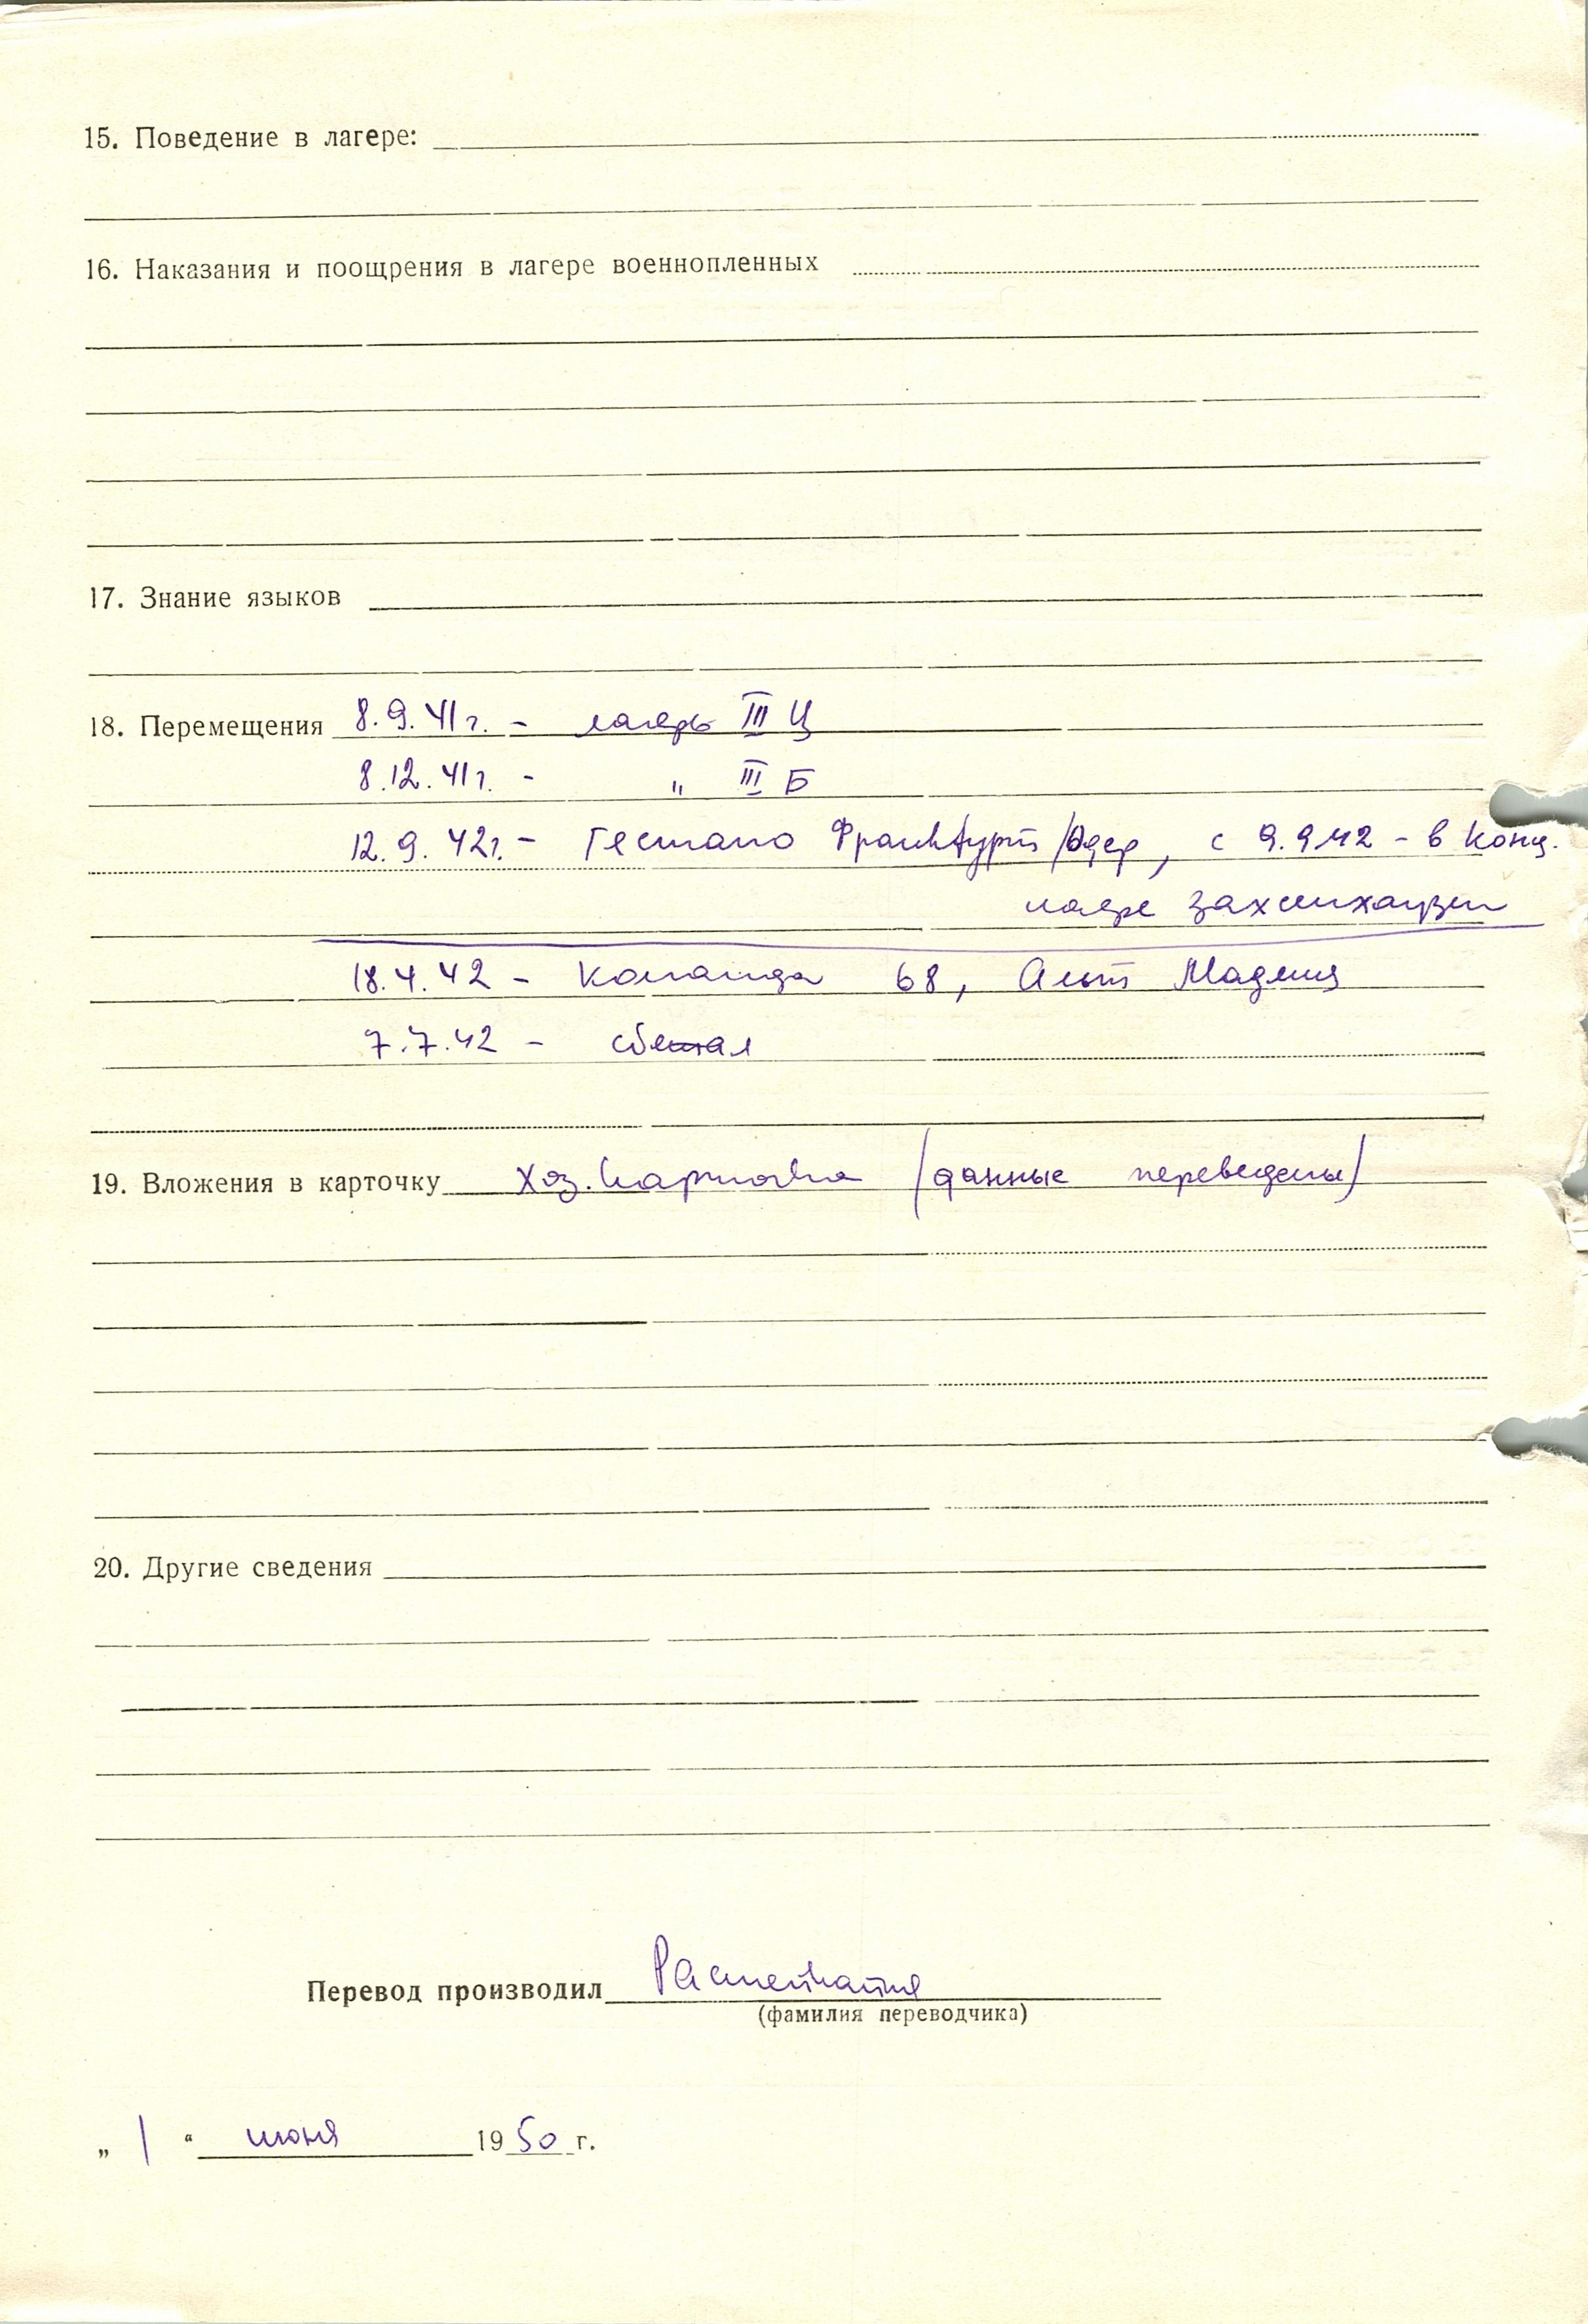 15. Поведение в лагере:
16. Наказания и поощрения в лагере военнопленных
17. Знание языков
18. Перемещения 8.9.41г. - лагерь III Ц
8.12.41г. - " III Б
12.9.42г. - Гестапо Франкфурт/Одер, с 9.9.42 - в Конц.
лагере Заксенхаузен
18.4.42 - Команда 68, Альт Мадлиц
7.7.42 - сбежал
19. Вложения в карточку Хоз. карточка /данные переведены/
20. Другие сведения
Перевод производил
(фамилия переводчика)
„ 1 “ июня 1950 г.